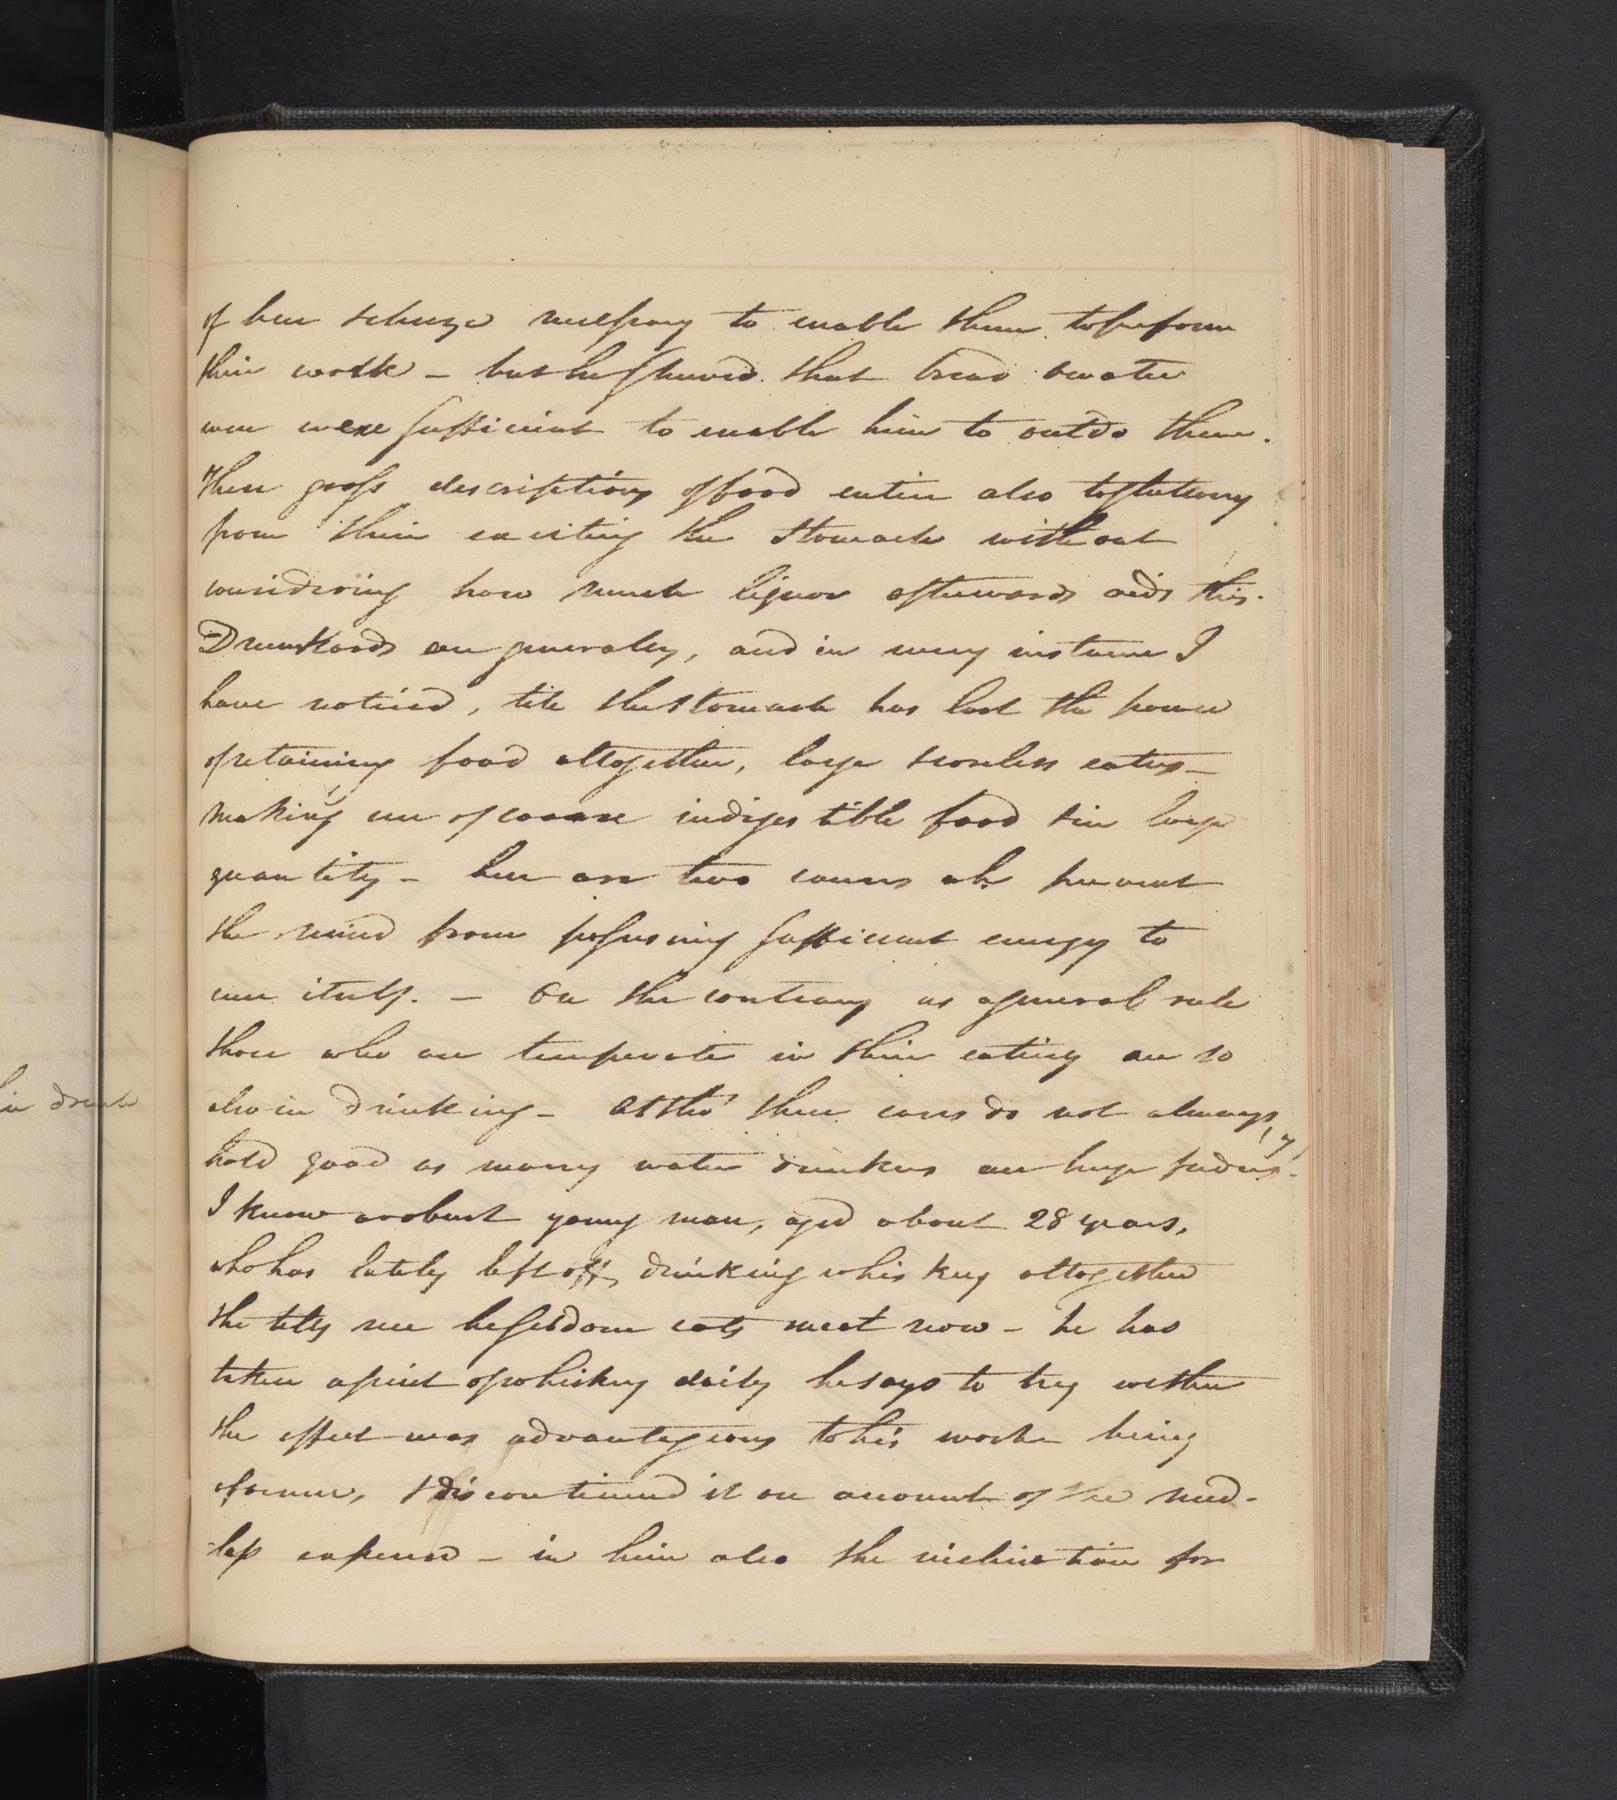 of beer & cheese necessary to enable them to perform
their work – but he showed that bread & water
were sufficient to enable him to outdo them.
These gross descriptions of food entice also to gluttony
from their exciting the stomach without
considering how much liquor afterwards aids this.
Drunkards are generally, and in every instance I
have noticed, till the stomach has lost the power
of retaining food altogether, large & careless eaters –
making use of coarse indigestible food & in large
quantity – here are two causes wh prevent
the mind from possessing sufficient energy to
cure itself. – On the contrary as a general rule
those who are temperate in their eating are so
also in drinking – Altho' these cases do not always
hold good as many water drinkers are huge feeders.
I know a robust young man, aged about 28 years,
who has lately left off drinking whiskey altogether
he tells me he seldom eats meat now – he has
taken a pint of whiskey daily he says to try wether
the effect was advantageous to his work being
a farmer, & discontinued it on account of the need-
less expense – in him also the inclination for
his drink